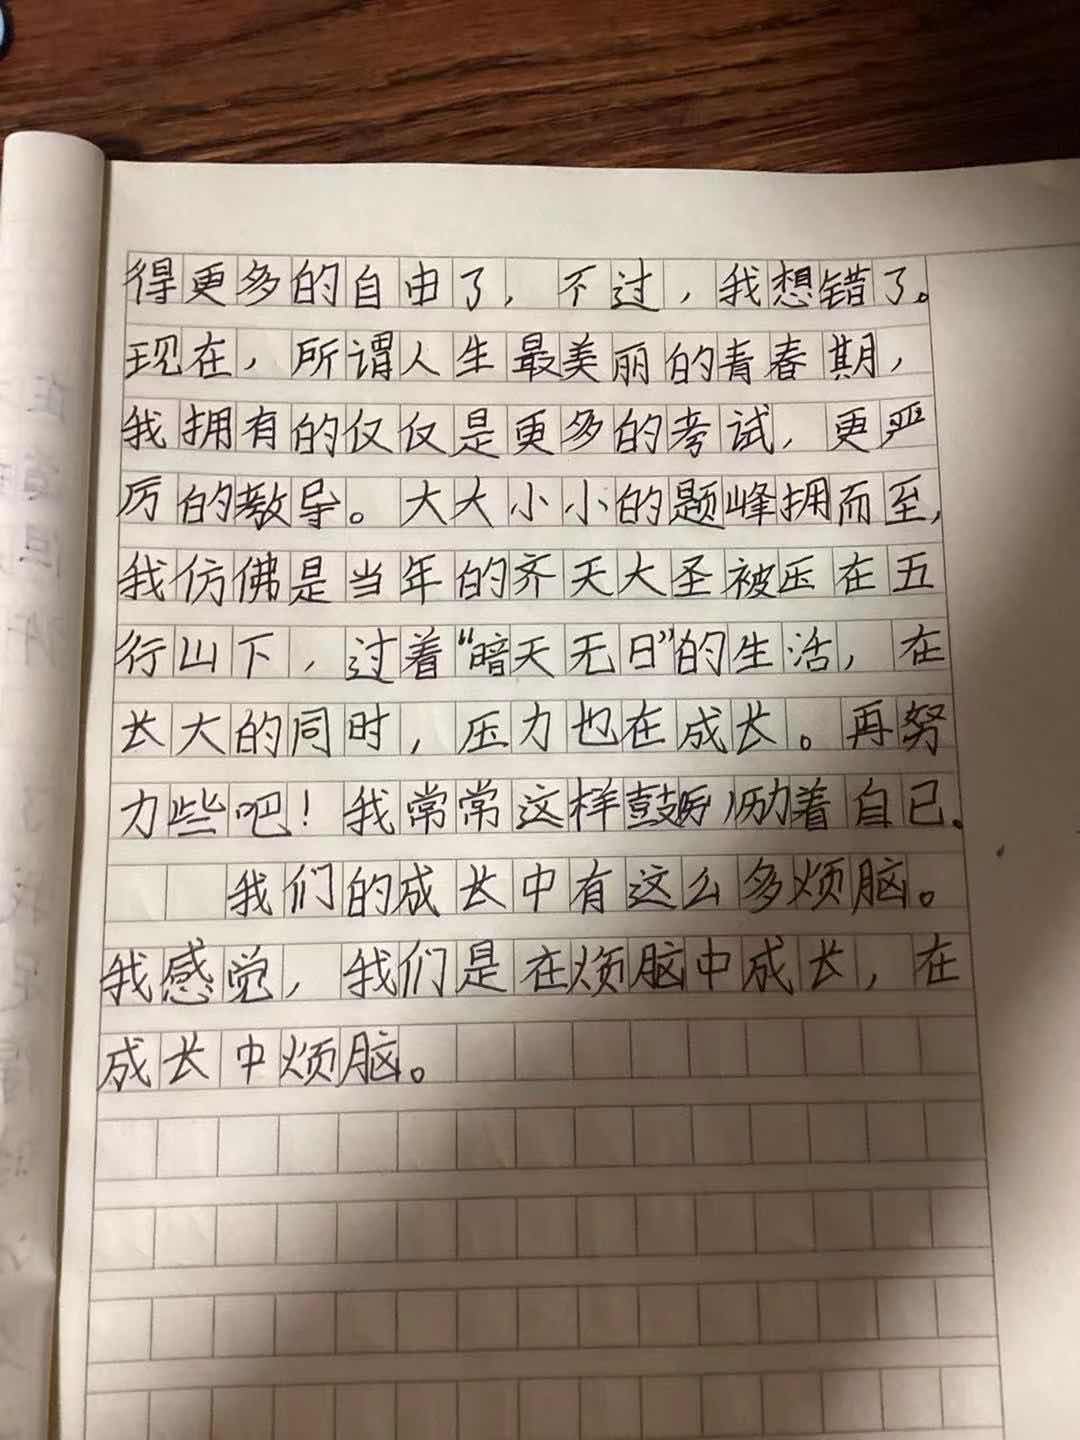 得更多的自由了，不过，我想错了。
现在，所谓人生最美丽的青春期，
我拥有的仅仅是更多的考试，更严
厉的教导。大大小小的题峰拥而至，
我仿佛是当年的齐天大圣被压在五
行山下，过着“暗天无日”的生活，在
长大的同时，压力也在成长。再努
力些吧！我常常这样鼓励着自己.
我们的成长中有这么多烦脑。
我感觉，我们是在烦脑中成长，在
成长中烦脑。